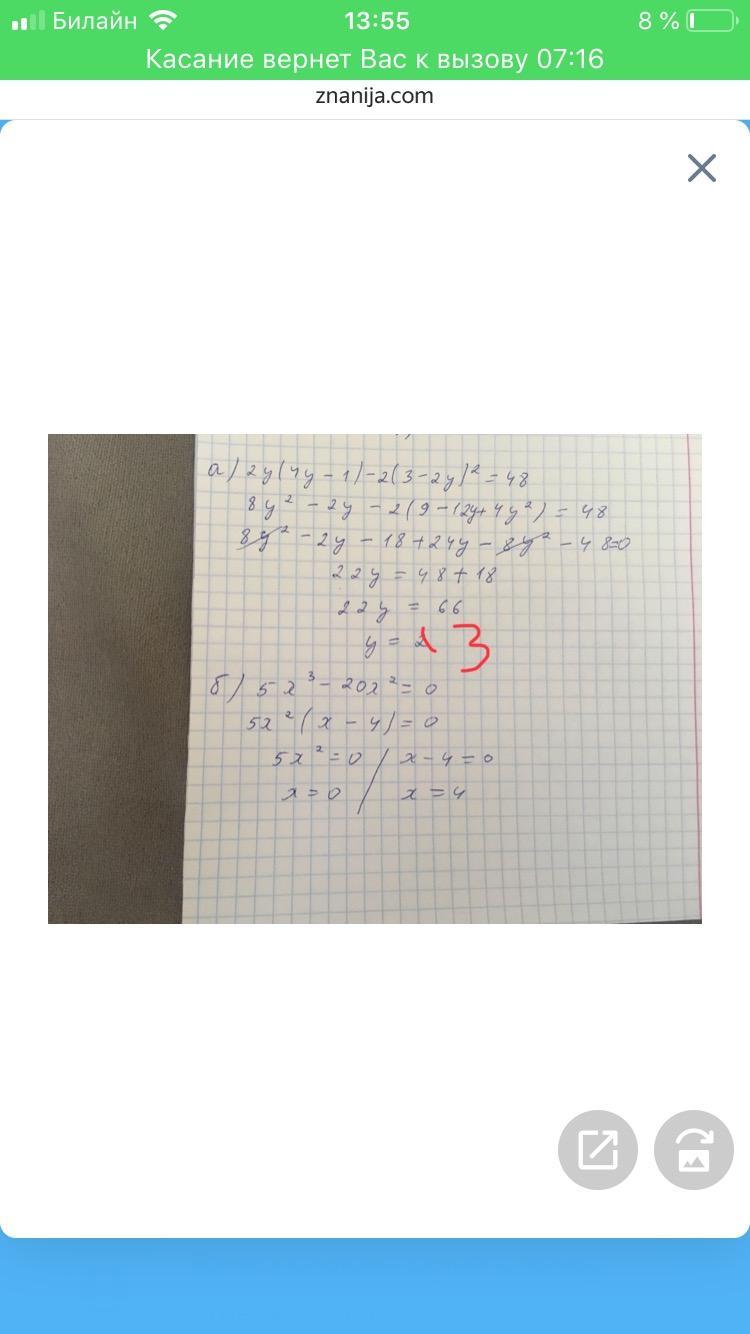 Билайн 13:55 8 %
Касание вернет Вас к вызову 07:16
znanija.com
а) 2y(4y - 1) - 2(3 - 2y)² = 48
8y² - 2y - 2(9 - 12y + 4y²) = 48
8y² - 2y - 18 + 24y - 8y² - 48=0
22y = 48 + 18
22y = 66
y = 2 3
б) 5x³ - 20x² = 0
5x²(x - 4) = 0
5x² = 0 / x - 4 = 0
x = 0 / x = 4